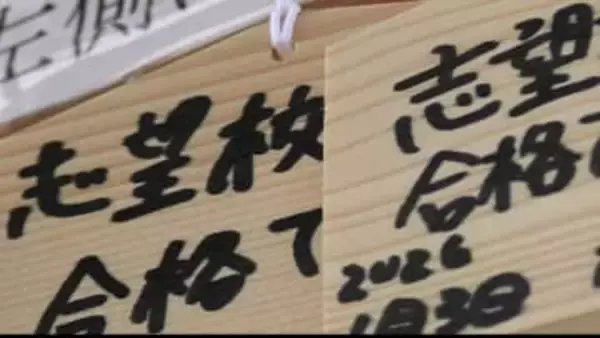 左側
志望校
合格て
志望
合格
2026
1月3日